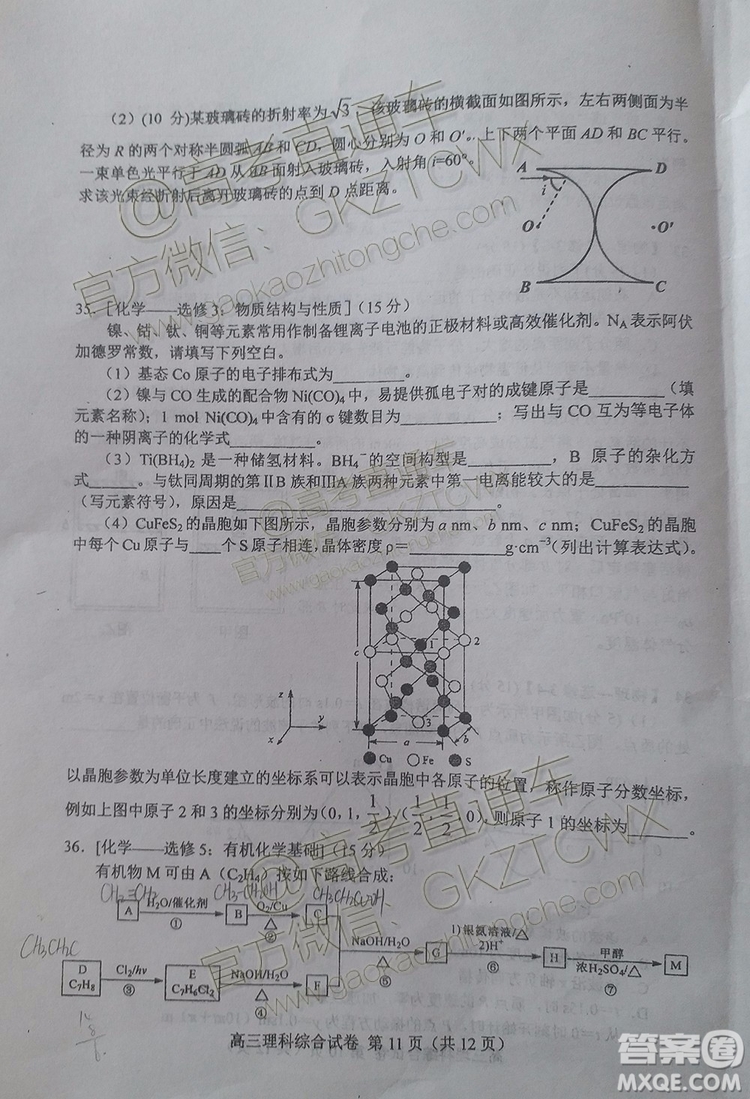 (2)(10 分)某玻璃砖的折射率为√3 该玻璃砖的横截面如图所示，左右两侧面为半
径为 R 的两个对称半圆弧 AB 和 CD，圆心分别为 O 和 O'。上下两个平面 AD 和 BC 平行。
一束单色光平行于 AD 从 AB 面射入玻璃砖，入射角 i=60°。
求该光束经折射后离开玻璃砖的点到 D 点距离。
A D
i
O O'
B C
35. [化学——选修 3：物质结构与性质](15 分)
镍、钴、钛、铜等元素常用作制备锂离子电池的正极材料或高效催化剂。NA 表示阿伏
加德罗常数，请填写下列空白。
(1) 基态 Co 原子的电子排布式为________。
(2) 镍与 CO 生成的配合物 Ni(CO)4 中，易提供孤电子对的成键原子是________(填
元素名称)；1 mol Ni(CO)4 中含有的 σ 键数目为________；写出与 CO 互为等电子体
的一种阴离子的化学式________。
(3) Ti(BH4)2 是一种储氢材料。BH4⁻ 的空间构型是________，B 原子的杂化方
式____。与钛同周期的第ⅡB 族和ⅢA 族两种元素中第一电离能较大的是________
(写元素符号)，原因是________。
(4) CuFeS2 的晶胞如下图所示，晶胞参数分别为 a nm、b nm、c nm；CuFeS2 的晶胞
中每个 Cu 原子与____个 S 原子相连，晶体密度 ρ=________g·cm⁻³(列出计算表达式)。
1 2
c
3
a b
z y x
Cu Fe S
以晶胞参数为单位长度建立的坐标系可以表示晶胞中各原子的位置，称作原子分数坐标，
例如上图中原子 2 和 3 的坐标分别为(0, 1, 1/2)、(1/2, 1/2, 0)，则原子 1 的坐标为________。
36. [化学——选修 5：有机化学基础](15 分)
有机物 M 可由 A(C2H4)按如下路线合成：
CH2=CH2
A H2O/催化剂 ① B O2/Cu △ ② C
CH3CH2C
D C7H8 Cl2/hν ③ E C7H6Cl2 NaOH/H2O △ ④ F
NaOH/H2O △ ⑤ G 1)银氨溶液/△ 2)H⁺ ⑥ H 甲醇 浓H2SO4/△ ⑦ M
高三理科综合试卷 第 11 页（共 12 页）
@高考直通车
官方微信：GKZTCWX
www.gaokaozhitongche.com
@高考直通车
官方微信：GKZTCWX
www.gaokaozhitongche.com
@高考直通车
官方微信：GKZTCWX
答案圈
MXQE.COM